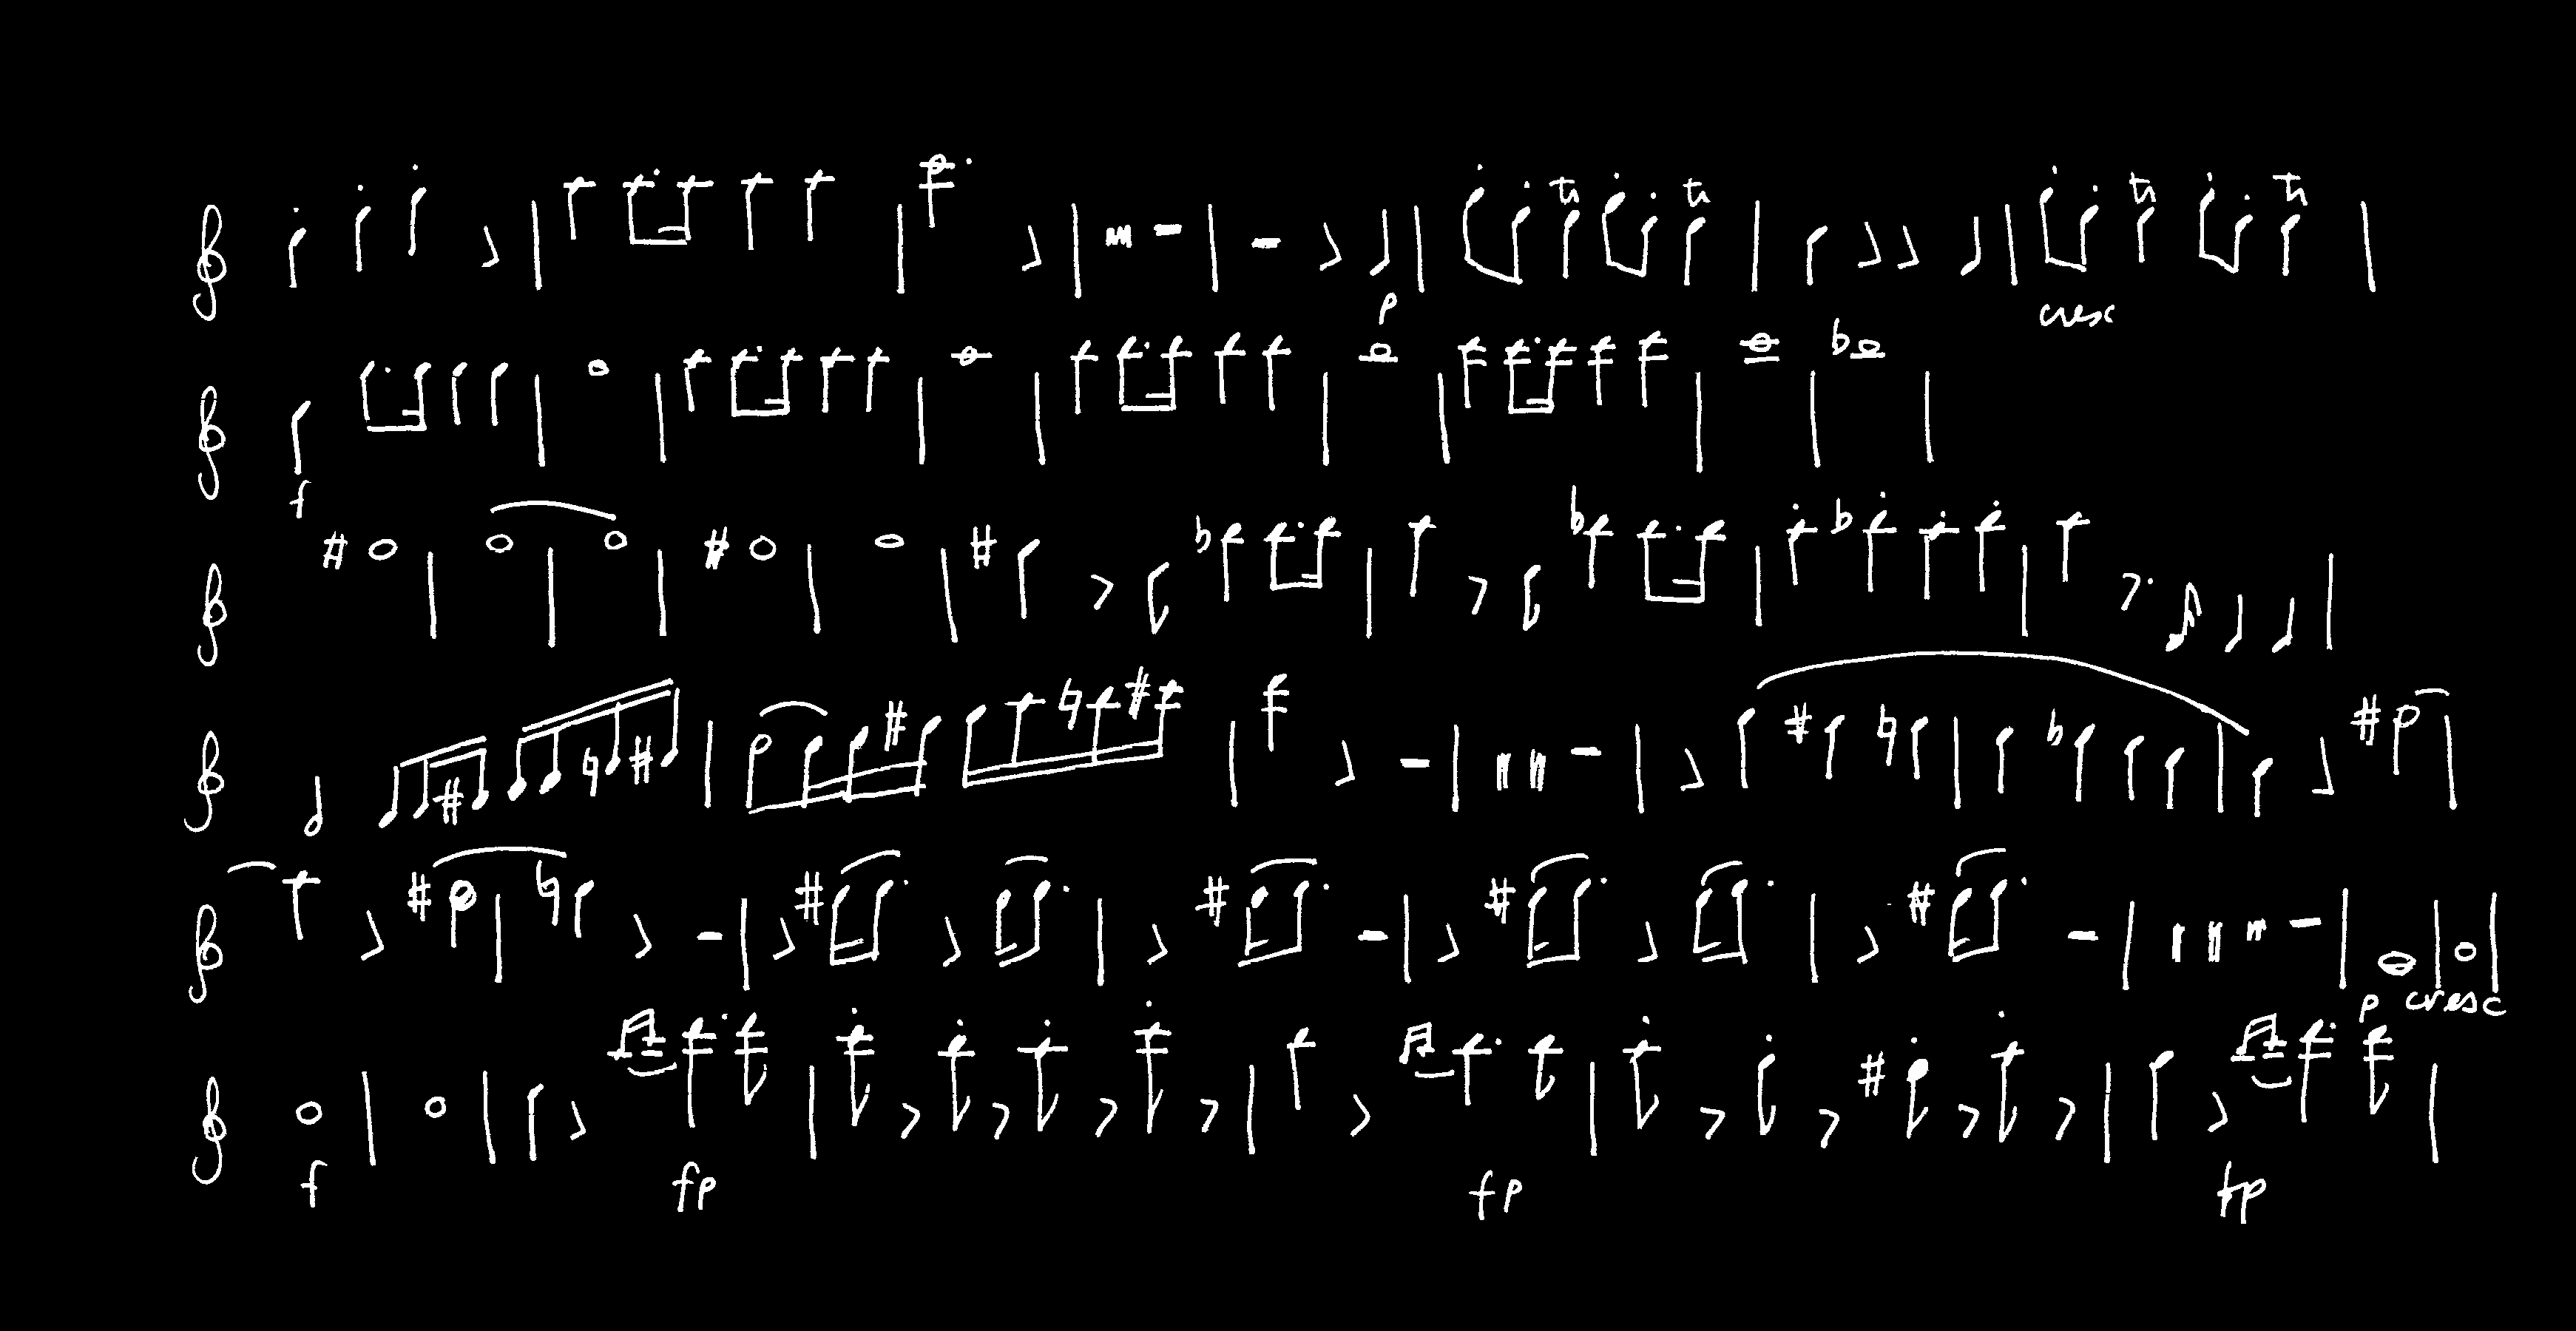 tr tr tr tr
p cresc
f
p cresc
f fp fp fp